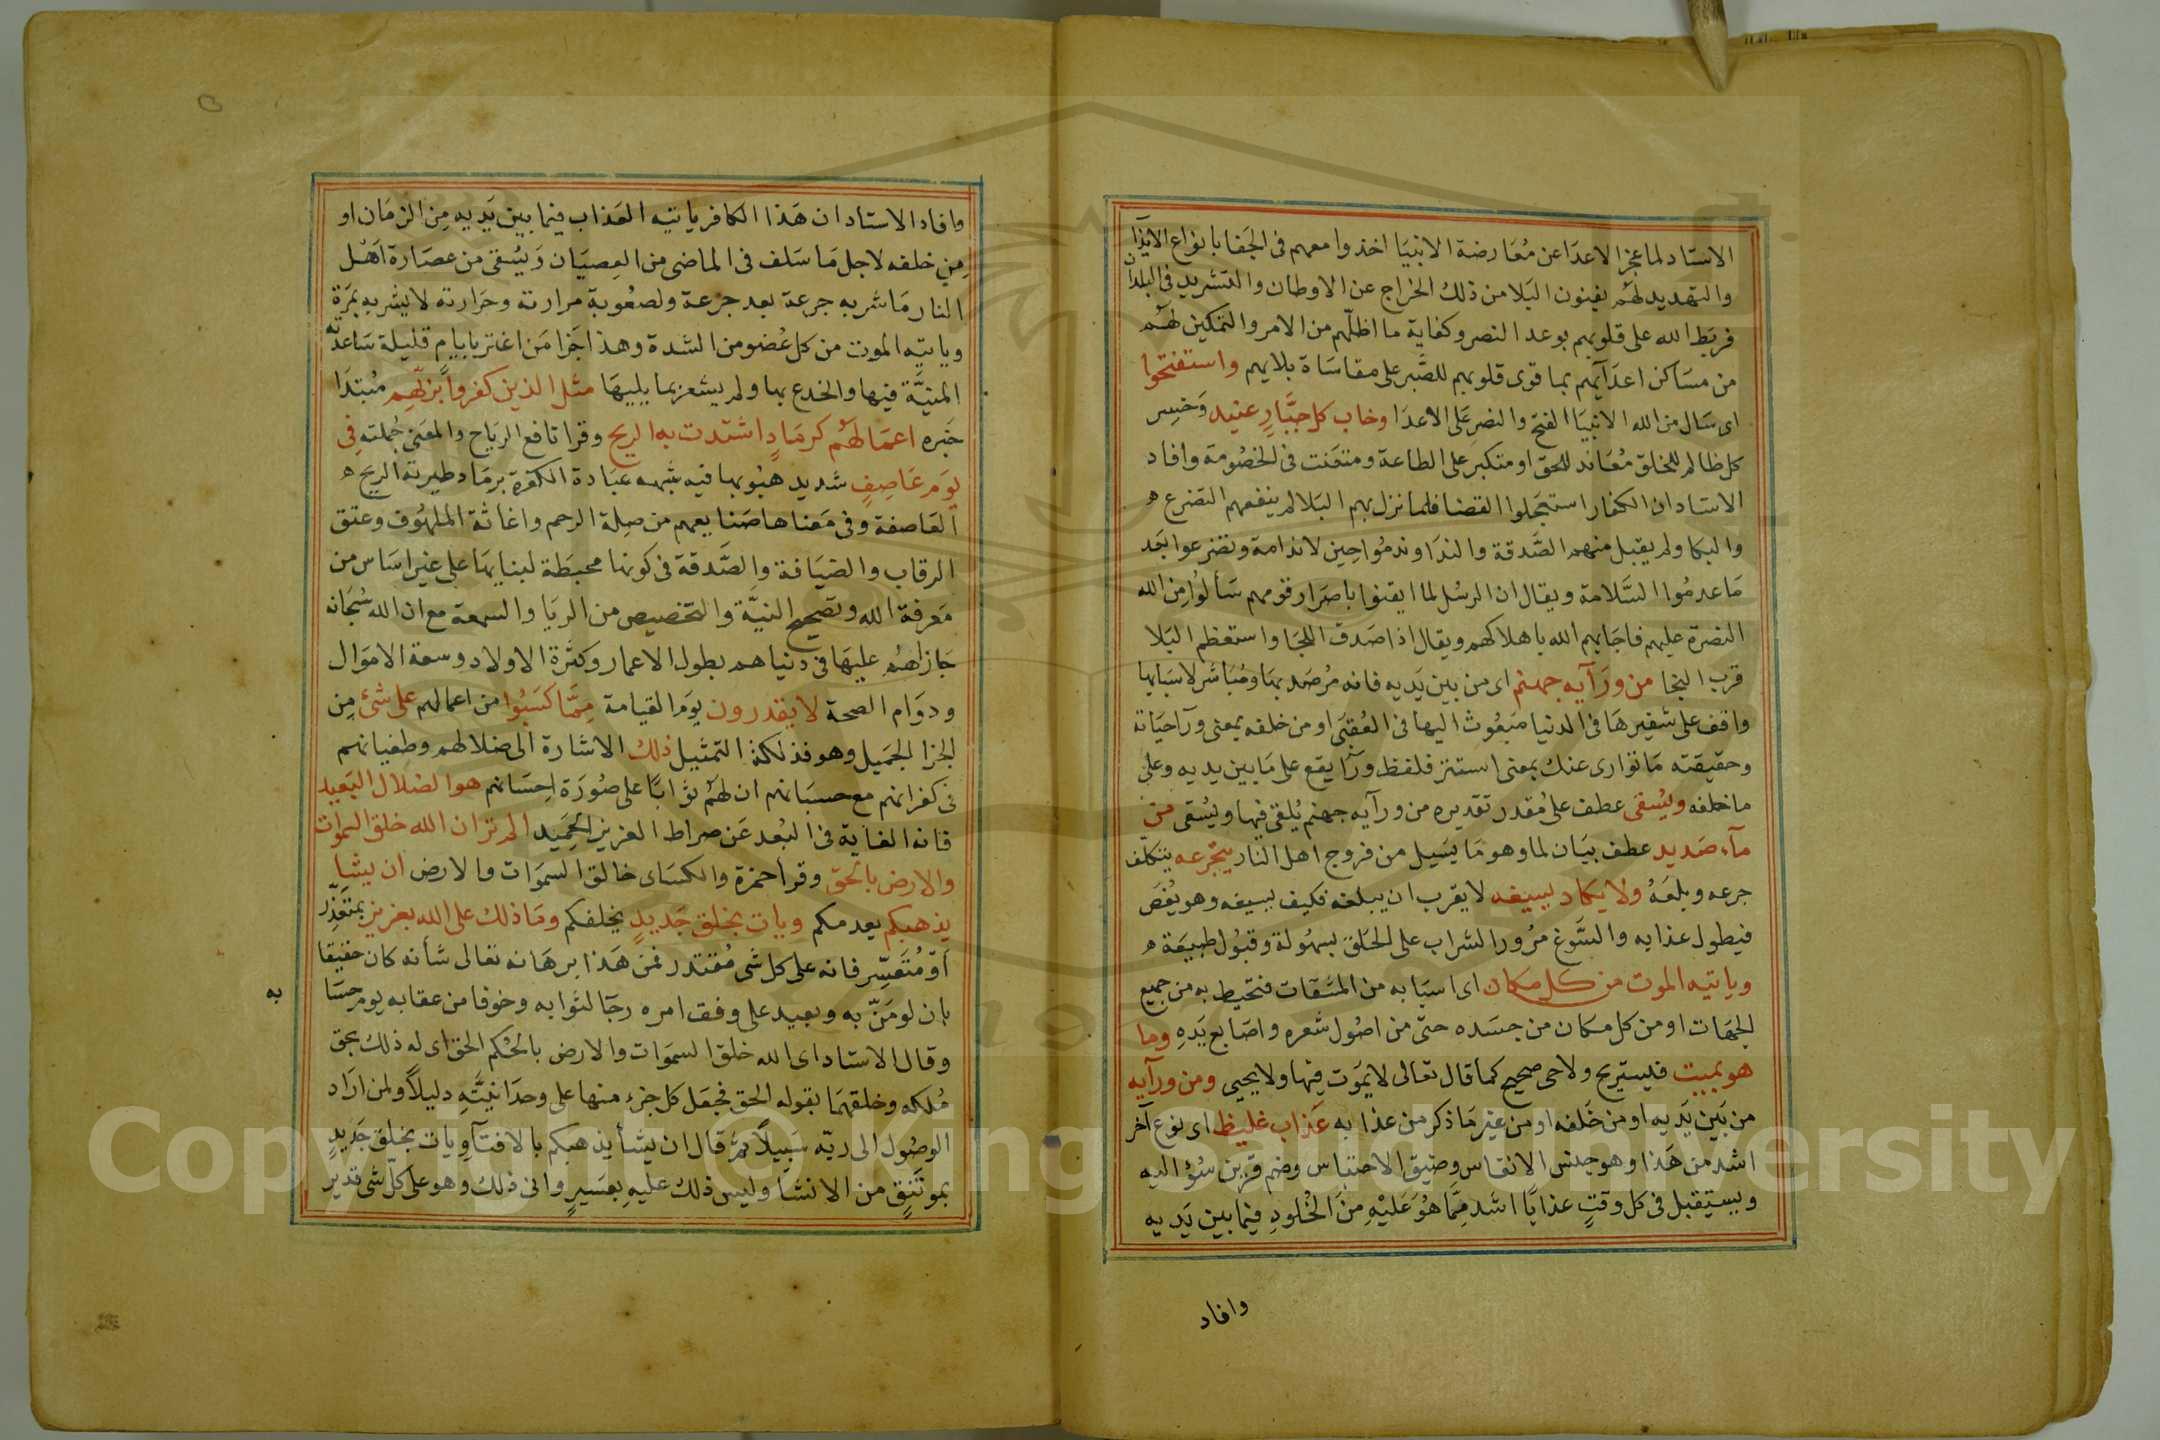 الاستاد لما عجز الاعدا عن مُعَارضة الانبيَا اخذوا معهم فى الجَفا بانواع الايذا
والتهديد لهُم بفنون البَلا من ذلك الخراج عن الاوطان والتشريد فى البلدان
فربَط الله على قلوبهم بوعد النصر وكفاية ما اظلّهم من الامر والتمكين لهُم
من مسَاكن اعدَآيَهم بما قوى قلوبهم للصَّبر على مقاسَاة بلايهم واستفتحوا
اى سَال من الله الانبيَا الفتح والنصر عَلى الاعدَا وخاب كل جبَّارٍ عنيد وَخسِر
كل ظالم للخلق مُعَاند للحق او متكبر على الطاعة ومتعَنت فى الخصُومة وافاد
الاستاد ان الكفار استعجَلوا القضا فلما نزل بهم البَلا لم ينفعهم التضرع ه
والبكا ولم يقبل منهم الصَّدقة والندَا وندمُوا حِين لا ندامة وتضرعوا بَعد
مَا عدمُوا السَّلامة ويقال ان الرسُل لما ايقنوا باصرَار قومهم سَألوُا مِن الله
النصرة عليهم فاجَابهم الله باهلاكهم ويقال اذا صَدق اللجَا واستعظم البَلا
قرب النجا من ورَآيه جهنم اى من بين يَديه فانه مُرصَد بهَا ومُبَاشر لاسبَابها
واقف على شفيرهَا فى الدنيا مَبعُوث اليها فى العُقبَى او من خلفه بمعنى ورآ حيَاته
وحقيقته مَا توارى عنك بمعنى استتر فلفظ ورآ يقع على مَا بين يديه وعلى
ما خلفه ويُسقى عطف على مُقدر تقديره من ورآيه جهنم يُلقى فيها ويُسقى من
مآء صَديد عطف بيَان لما وهو مَا يسَيل من فروج اهل النار يتجرعه يتكلف
جرعه وبلعَهُ ولا يكاد يسيغه لا يقرب ان يبلعه فكيف يسيغه وهو يُغصَ
فيطول عذابه والسَّوغ مرُور الشراب على الحَلق بسهُولة وقبُول طبيعَة ه
وياتيه الموت من كل مكان اى اسبَابه من المشَقات فتحيط به من جميع
الجهَات او من كل مكان من جسَده حتّى من اصُول شعره واصَابع يَدهِ وما
هو بميت فيستريح ولا حى صحيح كما قال تعَالى لا يمَوت فيها ولا يحيى ومن ورآيه
من بَين يَديه او من خَلفه او من غير مَا ذكر من عذابه عَذاب غليظ اى نوع آخر
اشد من هَذا وهو جنس الانفاس وضيق الاحتباس وضم قرين سُوْ اليه
ويستقبل فى كل وقتٍ عذابًا اشَد مِمَّا هُوَ عَليْهِ مِنَ الخُلودِ فيما بين يَديه
وافاد
وافاد الاستاد ان هَذا الكافر ياتيه العَذاب فيما بين يَديه مِن الزمَان او
مِن خلفه لاجل مَا سَلف فى الماضى من العِصيَان وَيُسقى من عصَارة اَهْل
النار مَا شربه جرعة بعد جرعة ولصعُوبة مرارته وحَرارته لا يشربه بمَرة
وياتيه الموت من كل عُضو من الشدة وهذا جَزا مَن اغتر بايامٍ قليلة سَاعدته
المنيَّة فيها والخدع بها ولم يشعر بما يليهَا مثل الذين كفرواْ بربّهِم مُبتدَا
خبَره اعمَالهُم كرمَادٍ اشتدت به الريح وقرا نافع الريَاح والمعنَى جُملته فى
يَومٍ عَاصِفٍ شديد هبُوبها فيه شبه عبَادة الكفرة برمَاد طيرته الريح ه
العَاصفة وفى مَعناها صَنايعهم من صِلة الرحم واغاثة الملهُوف وعتق
الرقاب والضيَافة والصَّدقة فى كونها محبَطة لبنايهَا على غير اسَاس من
مَعرفة الله وتصَحيح النيَّة والتخصيص من الريَا والسمعة مع ان الله سُبحَانه
جَازاهُم عليهَا فى دنياهم بطول الاعمار وكثرة الاولاد وسعة الاموَال
ودوَام الصحة لا يقدرون يَومَ القيامة مِمَّا كسَبُوا من اعمالهم على شئ مِن
الجزا الجَميل وهو فذلكة التمثيل ذلك الاشارة الى ضلالهم وطغيانهم
فى كفرانهم مع حسبَانهم ان لهُم ثوَابًا على صُورَة احِسَانهم هو الضلال البَعيد
فانه الغاية فى البُعد عَن صراط العزيز الحَمِيد الم تر ان الله خلق السموات
والارض بالحَق وقرا حمزة والكسَاى خالق السموَات والارض ان يشا
يذهبكم يعدمكم ويات بخلق جَديدٍ يخلفكم ومَا ذلك على الله بعزيز بمتعَذّر
اَوْ مُتعَسِّر فانه على كل شى مُقتدر فمن هَذا برهَانه تعَالى شأنه كان حقيقا
بان لومَنّ به ويعبد على وفق امره رجَآ لثوابه وخوفا من عقابه يوم حسَابه
وقال الاستاد اى الله خلق السموَات والارض بالحُكم الحق اى له ذلك بحق
مُلكه وخلقهمَا بقوله الحق فجعَل كل جزء منها على وحدَانيَّتهِ دليلاً ولمن ارَاد
الوصُول الى ربّه سَبِيلاً ثمّ قال ان يشأ يذهبكم بالافنآ ويات بخلق جَديدٍ
من الانشا وليس ذلك عليهِ بعسَيرٍ وانى ذلك وهو على كلّ شى قدير